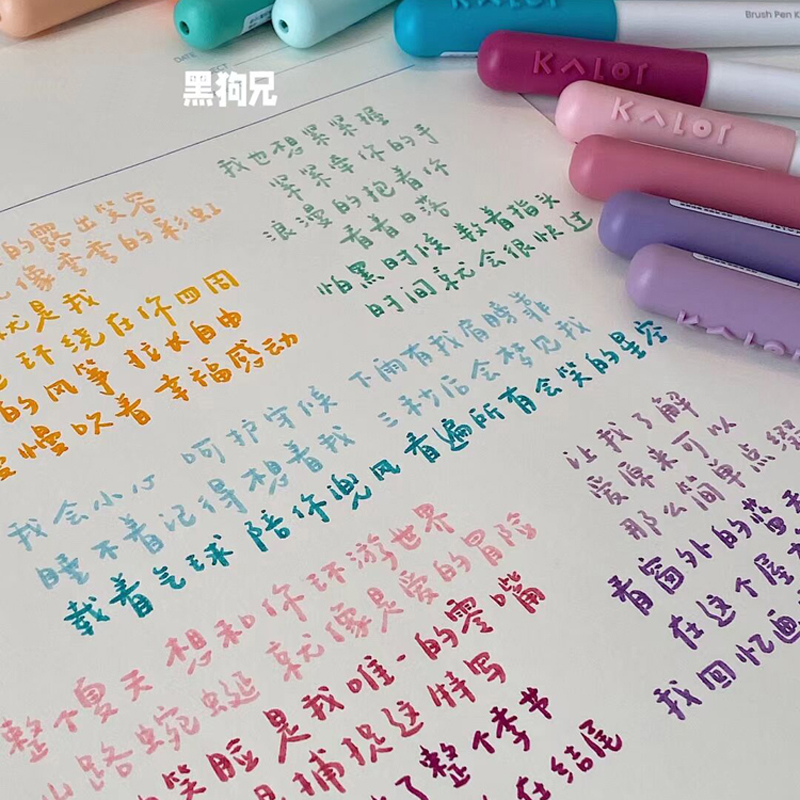 KALOT
Brush Pen K
KALOT
KALOT
KALOT
DATE
黑狗兄
我也想紧紧握
紧紧牵你的手
浪漫的抱着你
看着日落
怕黑时候 数着指头
时间就会很快过
的露出笑容
像弯弯的彩虹
就是我
环绕在你四周
的风筝 拉长自由
慢吹着 幸福感动
我会小心 呵护守候 下雨有我肩膀靠
睡不着记得想着我 三秒后会梦见我
载着气球 陪你兜风 看遍所有会笑的星空
整个夏天 想和你环游世界
山路蜿蜒 就像是爱的冒险
笑脸是我唯一的零嘴
是捕捉这特写
了整个季节
在结尾
让我了解
爱原来可以
那么简单点缀
看窗外的蓝
在这个屋
我回忆画